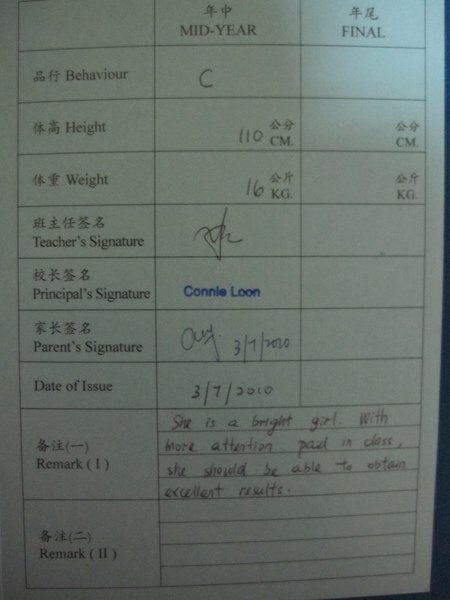 年中 年尾
MID-YEAR FINAL
品行 Behaviour C
体高 Height 110 公分 CM. 公分 CM.
体重 Weight 16 公斤 KG. 公斤 KG.
班主任签名
Teacher's Signature
校长签名
Principal's Signature Connie Loon
家长签名
Parent's Signature 3/7/2010
Date of Issue 3/7/2010
备注(一)
Remark ( I )
She is a bright girl. With
more attention paid in class,
she should be able to obtain
excellent results.
备注(二)
Remark ( II )